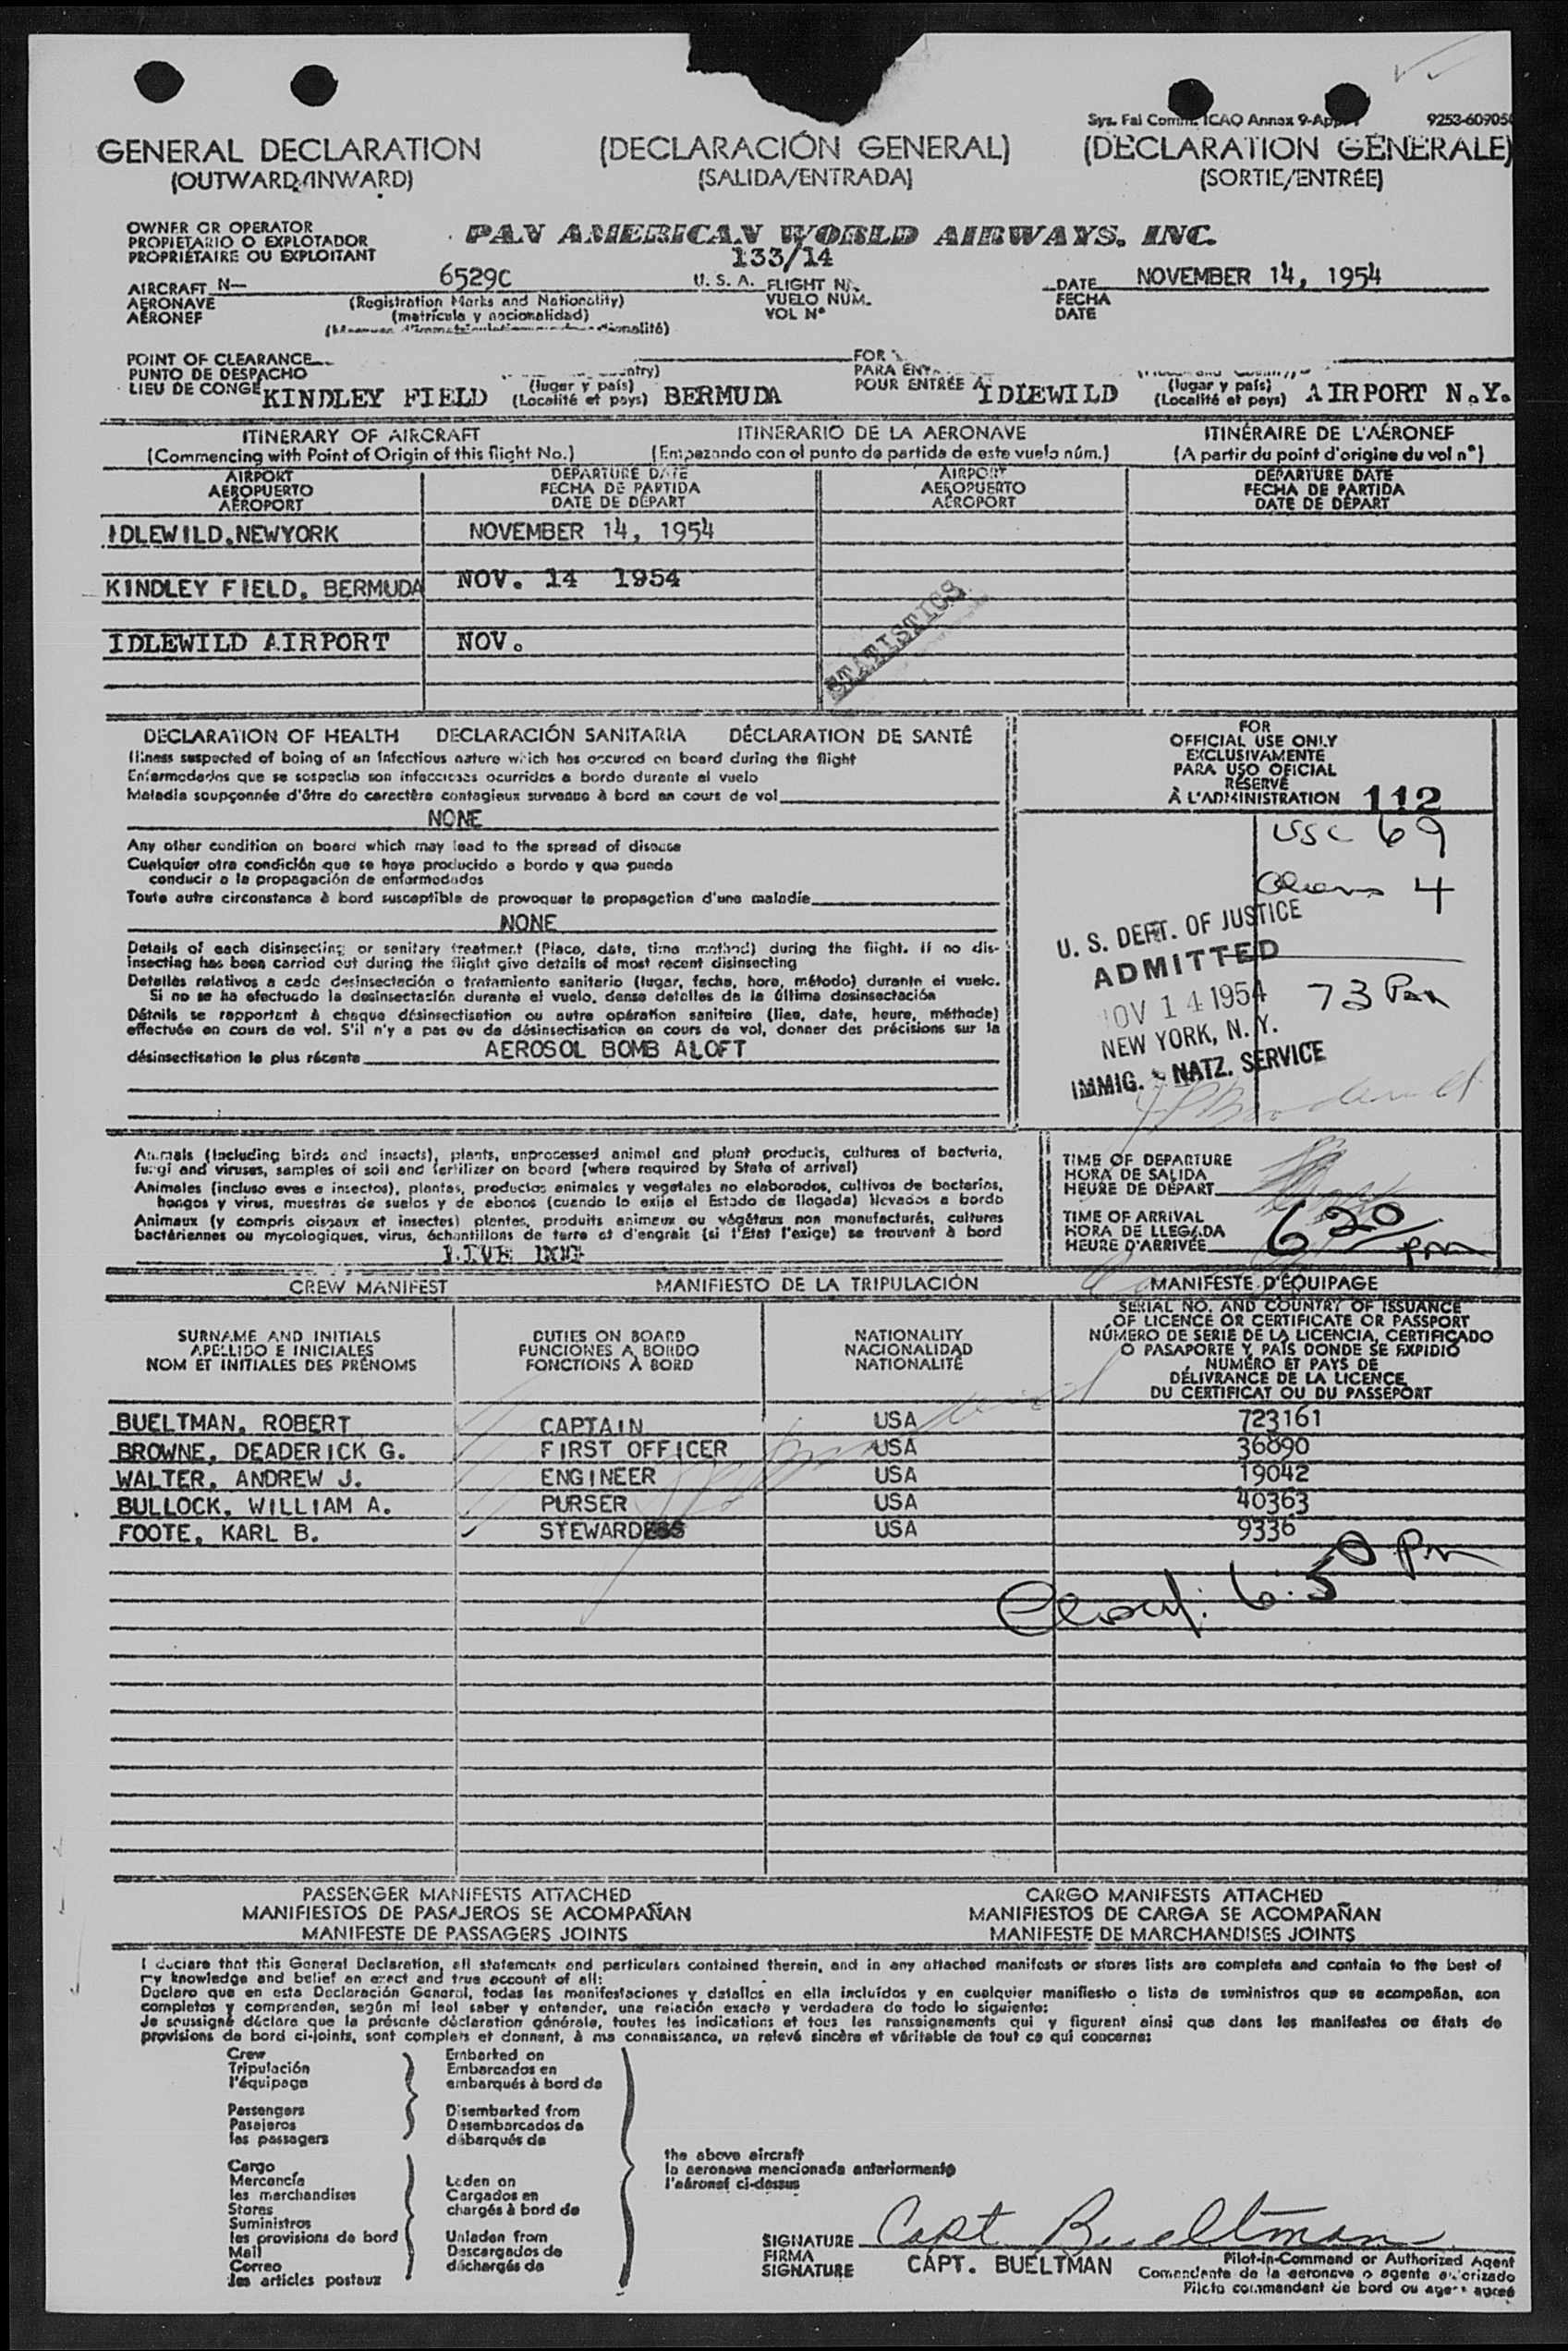 Sys. Fal Comm. ICAO Annex 9-App. 1 9253-609050
GENERAL DECLARATION (DECLARACIÓN GENERAL) (DÉCLARATION GÉNÉRALE)
(OUTWARD/INWARD) (SALIDA/ENTRADA) (SORTIE/ENTRÉE)
OWNER OR OPERATOR
PROPIETARIO O EXPLOTADOR
PROPRIÉTAIRE OU EXPLOITANT
PAN AMERICAN WORLD AIRWAYS, INC.
133/14
AIRCRAFT N— 6529C U. S. A. FLIGHT No. DATE NOVEMBER 14, 1954
AERONAVE (Registration Marks and Nationality) VUELO NUM. FECHA
AÉRONEF (matrícula y nacionalidad) VOL N° DATE
POINT OF CLEARANCE FOR
PUNTO DE DESPACHO PARA
LIEU DE CONGÉ KINDLEY FIELD (lugar y país) (Localité et pays) BERMUDA POUR ENTRÉE À IDLEWILD (lugar y país) (Localité et pays) AIRPORT N.Y.
ITINERARY OF AIRCRAFT ITINERARIO DE LA AERONAVE ITINÉRAIRE DE L'AÉRONEF
(Commencing with Point of Origin of this flight No.) (Empezando con el punto de partida de este vuelo núm.) (A partir du point d'origine du vol n°)
AIRPORT DEPARTURE DATE AIRPORT DEPARTURE DATE
AEROPUERTO FECHA DE PARTIDA AEROPUERTO FECHA DE PARTIDA
AÉROPORT DATE DE DÉPART AÉROPORT DATE DE DÉPART
IDLEWILD,NEWYORK NOVEMBER 14, 1954
KINDLEY FIELD, BERMUDA NOV. 14 1954
IDLEWILD AIRPORT NOV.
STATISTICS
DECLARATION OF HEALTH DECLARACIÓN SANITARIA DÉCLARATION DE SANTÉ
Illness suspected of being of an infectious nature which has occured on board during the flight
Enfermedades que se sospecha son infecciosas ocurridas a bordo durante el vuelo
Maladie soupçonnée d'être de caractère contagieux survenue à bord en cours de vol
NONE
Any other condition on board which may lead to the spread of disease
Cualquier otra condición que se haya producido a bordo y que pueda
conducir a la propagación de enfermedades
Toute autre circonstance à bord susceptible de provoquer la propagation d'une maladie
NONE
Details of each disinsecting or sanitary treatment (Place, date, time method) during the flight. If no dis-
insecting has been carried out during the flight give details of most recent disinsecting
Detalles relativos a cada desinsectación o tratamiento sanitario (lugar, fecha, hora, método) durante el vuelo.
Si no se ha efectuado la desinsectación durante el vuelo, dense detalles de la última desinsectación
Détails se rapportent à chaque désinsectisation ou autre opération sanitaire (lieu, date, heure, méthode)
effectuée en cours de vol. S'il n'y a pas eu de désinsectisation en cours de vol, donner des précisions sur la
désinsectisation la plus récente AEROSOL BOMB ALOFT
FOR
OFFICIAL USE ONLY
EXCLUSIVAMENTE
PARA USO OFICIAL
RÉSERVÉ
À L'ADMINISTRATION 112
USC 69
Aliens 4
73 Pax
U. S. DEPT. OF JUSTICE
ADMITTED
NOV 14 1954
NEW YORK, N. Y.
IMMIG. & NATZ. SERVICE
Animals (including birds and insects), plants, unprocessed animal and plant products, cultures of bacteria,
fungi and viruses, samples of soil and fertilizer on board (where required by State of arrival)
Animales (incluso aves e insectos), plantas, productos animales y vegetales no elaborados, cultivos de bacterias,
hongos y virus, muestras de suelos y de abonos (cuando lo exija el Estado de llegada) llevados a bordo
Animaux (y compris oiseaux et insectes) plantes, produits animaux ou végétaux non manufacturés, cultures
bactériennes ou mycologiques, virus, échantillons de terre et d'engrais (si l'Etat l'exige) se trouvant à bord
LIVE DOG
TIME OF DEPARTURE
HORA DE SALIDA
HEURE DE DÉPART
TIME OF ARRIVAL
HORA DE LLEGADA
HEURE D'ARRIVÉE 6 20 pm
CREW MANIFEST MANIFIESTO DE LA TRIPULACIÓN MANIFESTE D'ÉQUIPAGE
SURNAME AND INITIALS
APELLIDO E INICIALES
NOM ET INITIALES DES PRÉNOMS
DUTIES ON BOARD
FUNCIONES A BORDO
FONCTIONS À BORD
NATIONALITY
NACIONALIDAD
NATIONALITÉ
SERIAL NO. AND COUNTRY OF ISSUANCE
OF LICENCE OR CERTIFICATE OR PASSPORT
NÚMERO DE SERIE DE LA LICENCIA, CERTIFICADO
O PASAPORTE Y PAÍS DONDE SE EXPIDIÓ
NUMÉRO ET PAYS DE
DÉLIVRANCE DE LA LICENCE
DU CERTIFICAT OU DU PASSEPORT
BUELTMAN, ROBERT CAPTAIN USA 723161
BROWNE, DEADERICK G. FIRST OFFICER USA 36890
WALTER, ANDREW J. ENGINEER USA 19042
BULLOCK, WILLIAM A. PURSER USA 40363
FOOTE, KARL B. STEWARDESS USA 9336
6:50 Pm
PASSENGER MANIFESTS ATTACHED CARGO MANIFESTS ATTACHED
MANIFIESTOS DE PASAJEROS SE ACOMPAÑAN MANIFIESTOS DE CARGA SE ACOMPAÑAN
MANIFESTE DE PASSAGERS JOINTS MANIFESTE DE MARCHANDISES JOINTS
I declare that this General Declaration, all statements and particulars contained therein, and in any attached manifests or stores lists are complete and contain to the best of
my knowledge and belief an exact and true account of all:
Declaro que en esta Declaración General, todas las manifestaciones y detalles en ella incluídos y en cualquier manifiesto o lista de suministros que se acompañan, son
completos y comprenden, según mi leal saber y entender, una relación exacta y verdadera de todo lo siguiente:
Je soussigné déclare que la présente déclaration générale, toutes les indications et tous les renseignements qui y figurent ainsi que dans les manifestes ou états de
provisions de bord ci-joints, sont complets et donnent, à ma connaissance, un relevé sincère et véritable de tout ce qui concerne:
Crew Embarked on
Tripulación Embarcados en
l'équipage embarqués à bord de
Passengers Disembarked from
Pasajeros Desembarcados de
les passagers débarqués de
the above aircraft
la aeronave mencionada anteriormente
l'aéronef ci-dessus
Cargo
Mercancía Laden on
les marchandises Cargados en
Stores chargés à bord de
Suministros
les provisions de bord Unladen from
Mail Descargados de
Correo déchargés de
les articles postaux
SIGNATURE Capt. Bueltman
FIRMA
SIGNATURE CAPT. BUELTMAN
Pilot-in-Command or Authorized Agent
Comandante de la aeronave o agente autorizado
Pilote commandant de bord ou agent agréé